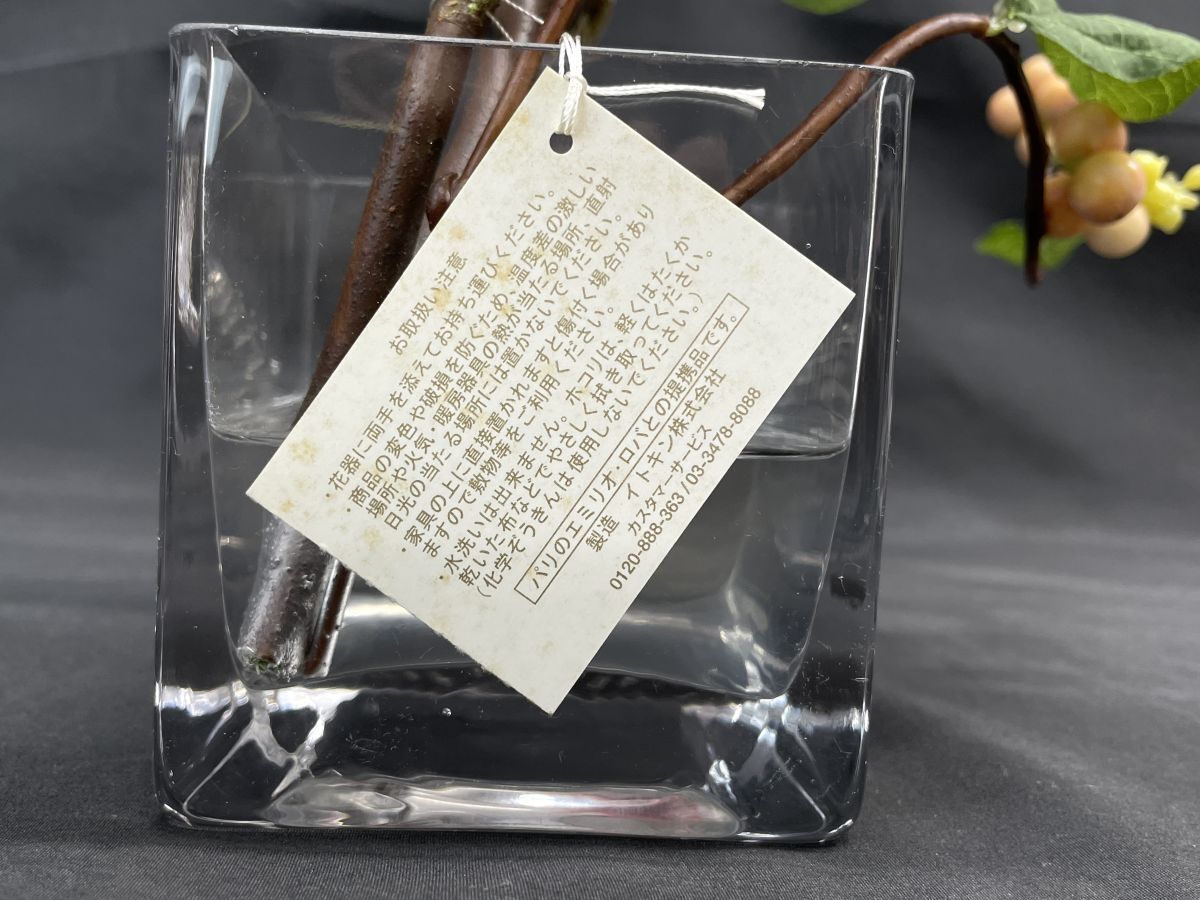 お取扱い注意
・花器に両手を添えてお持ち運びください。
・商品の変色や破損を防ぐため、温度差の激しい
場所や火気、暖房器具の熱が当たる場所、直射
日光の当たる場所には置かないでください。
・家具の上に直接置かれますと傷付く場合があり
ますので敷物等をご利用ください。
・水洗いは出来ません。ホコリは、軽くはたくか
乾いた布などでやさしく拭き取ってください。
(化学ぞうきんは使用しないでください。)
パリのエミリオ・ロバとの提携品です。
製造 イトキン株式会社
カスタマーサービス
0120-888-363 /03-3478-8088